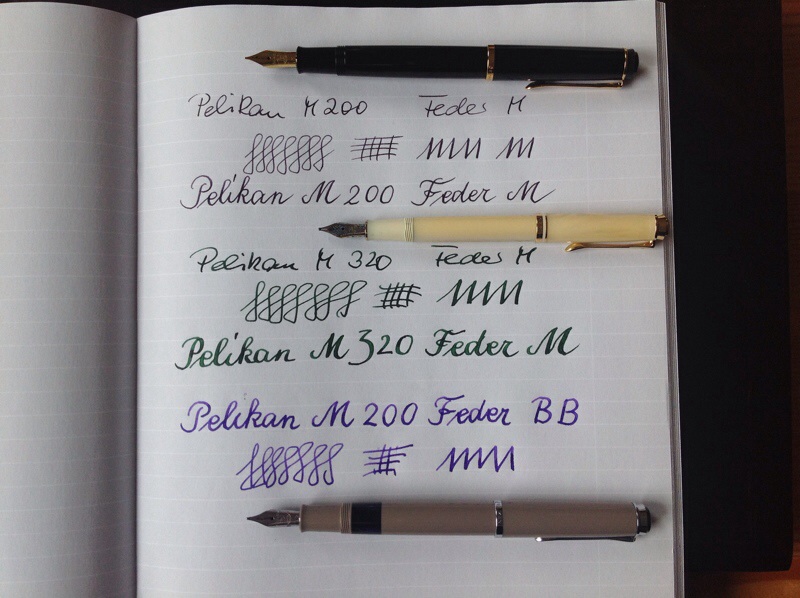 Pelikan M 200 Feder M
Pelikan M 200 Feder M
Pelikan M 320 Feder M
Pelikan M 320 Feder M
Pelikan M 200 Feder BB